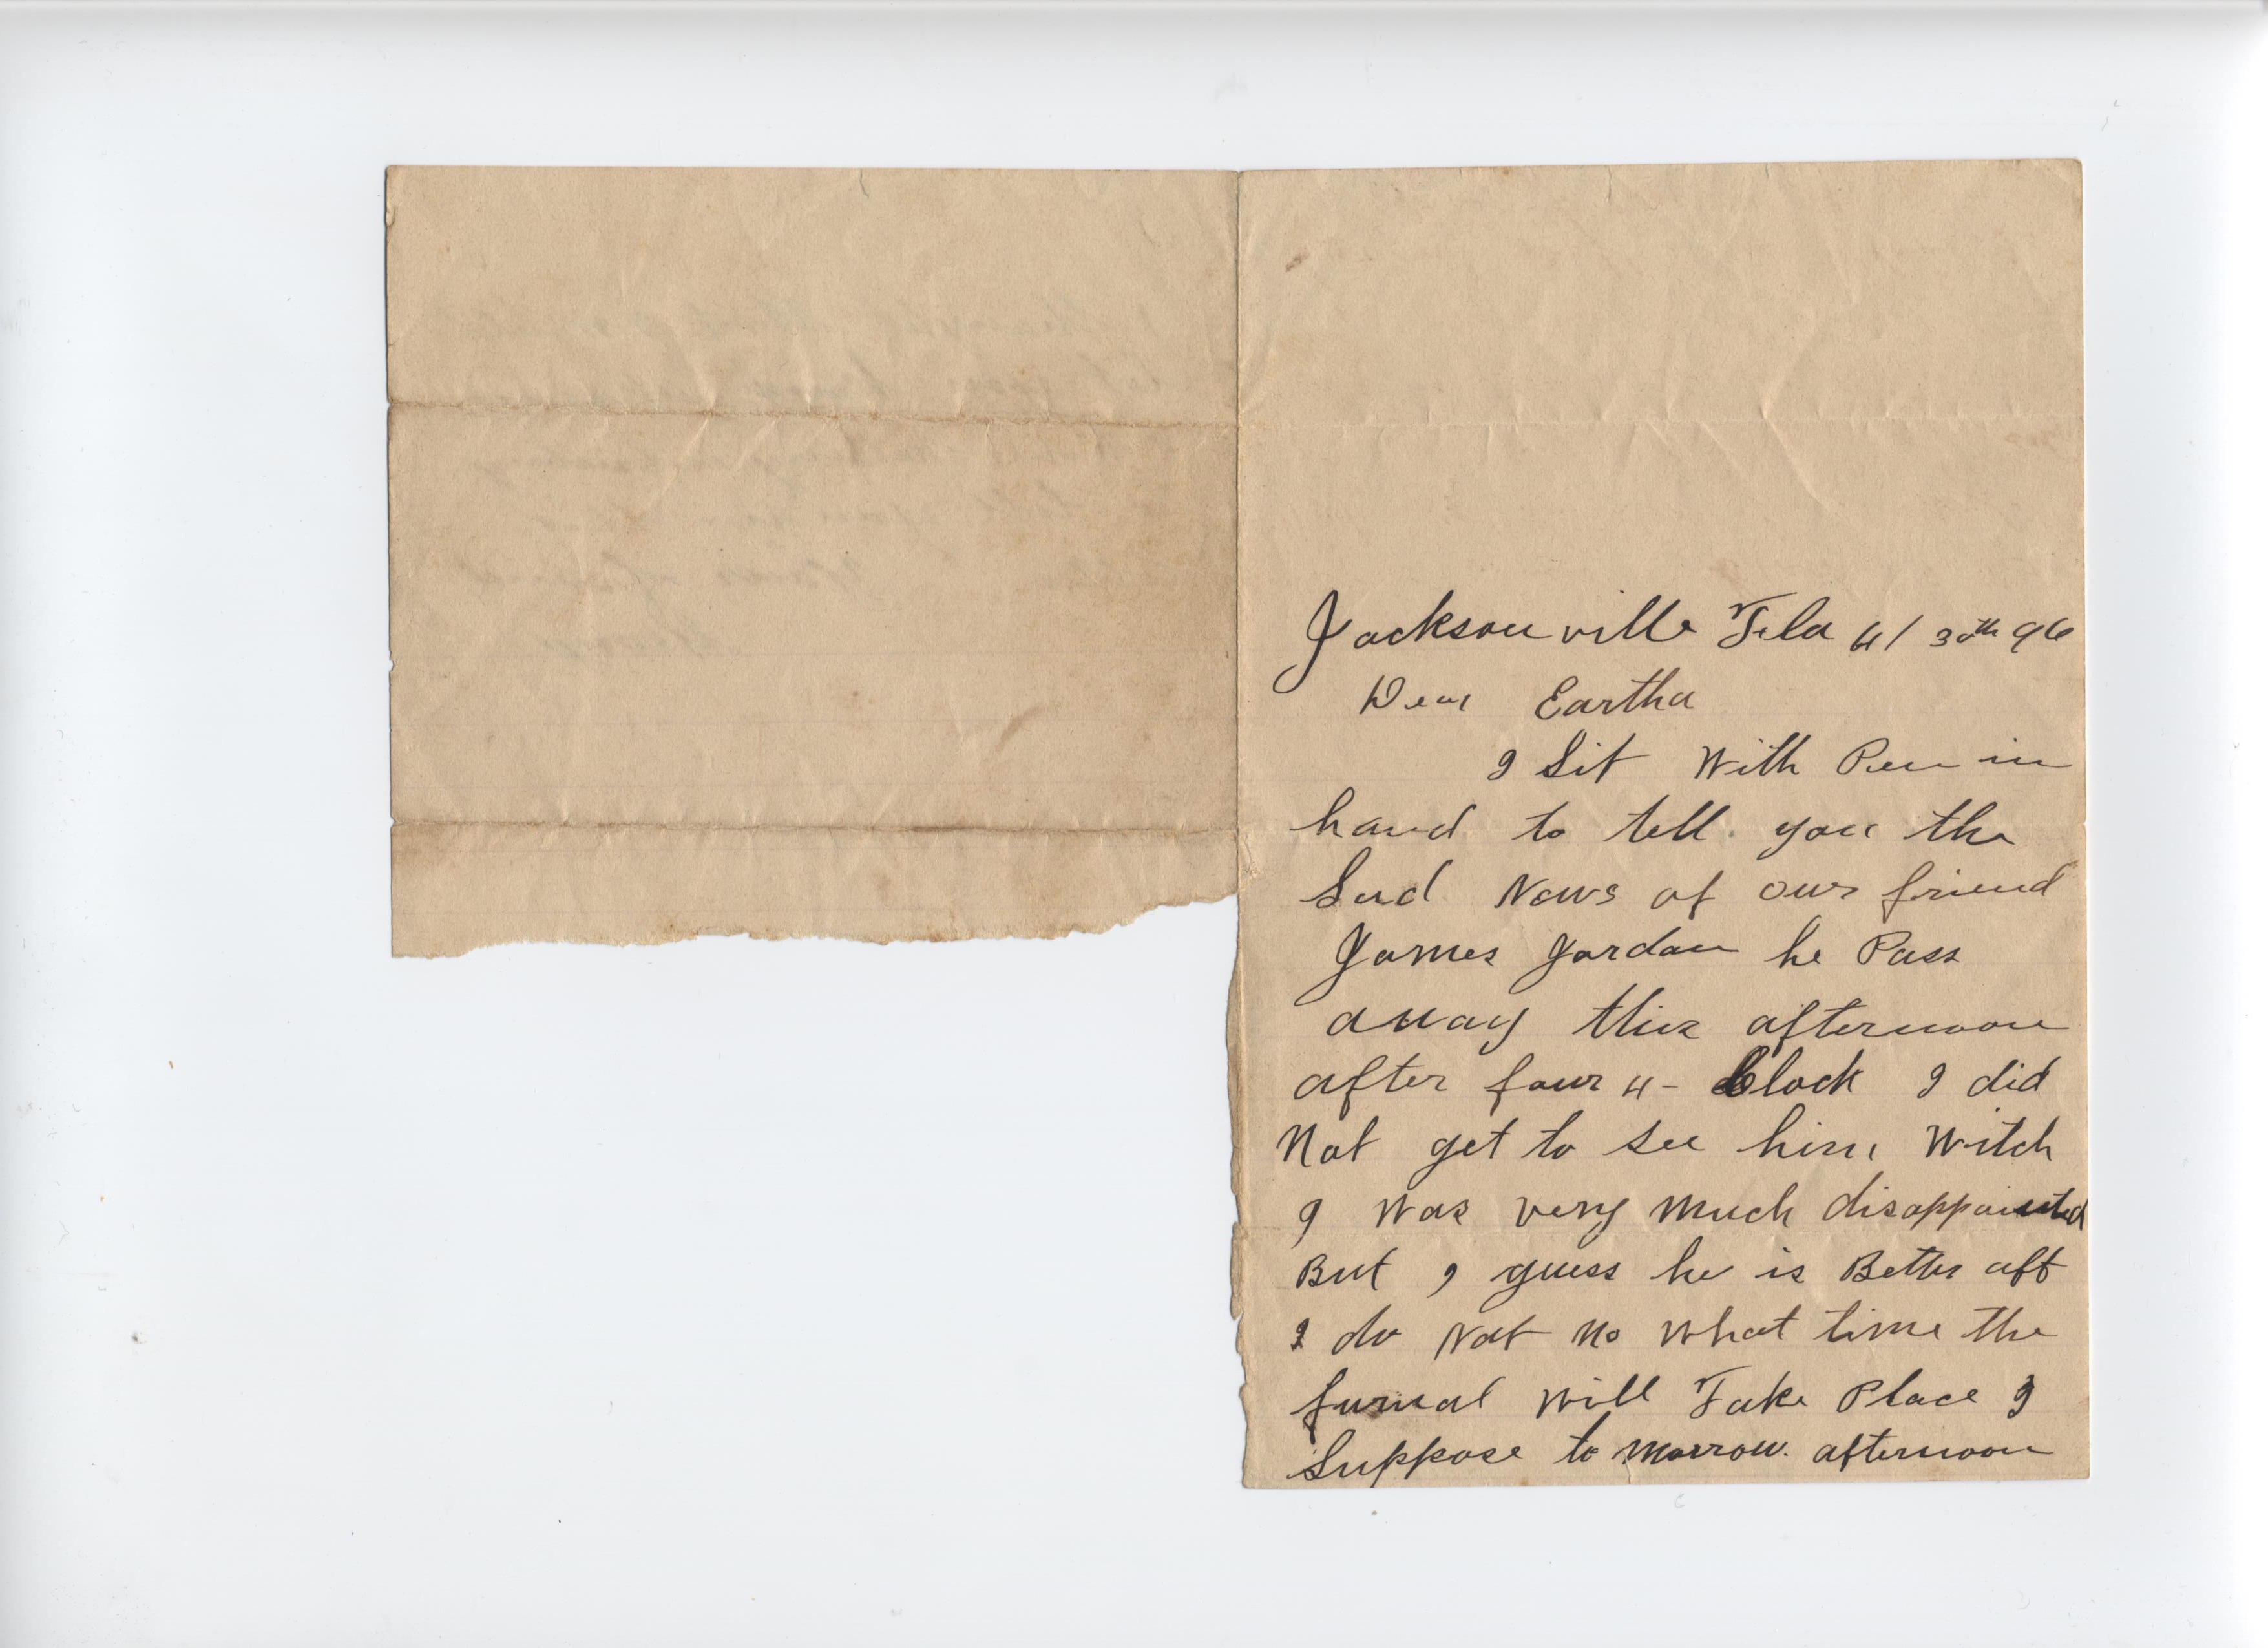 Jacksonville Fla 4/30th 96
Dear Eartha
I Sit With Pen in
hand to tell you the
Sad News of our friend
James Jordan he Pass
away this afternoon
after four 4 - Clock I did
Not get to see him Witch
I Was very Much disappointed
But I guess he is Better aft
I do Not No What time the
furnal Will Take Place I
Suppose to Morrow. afternoon